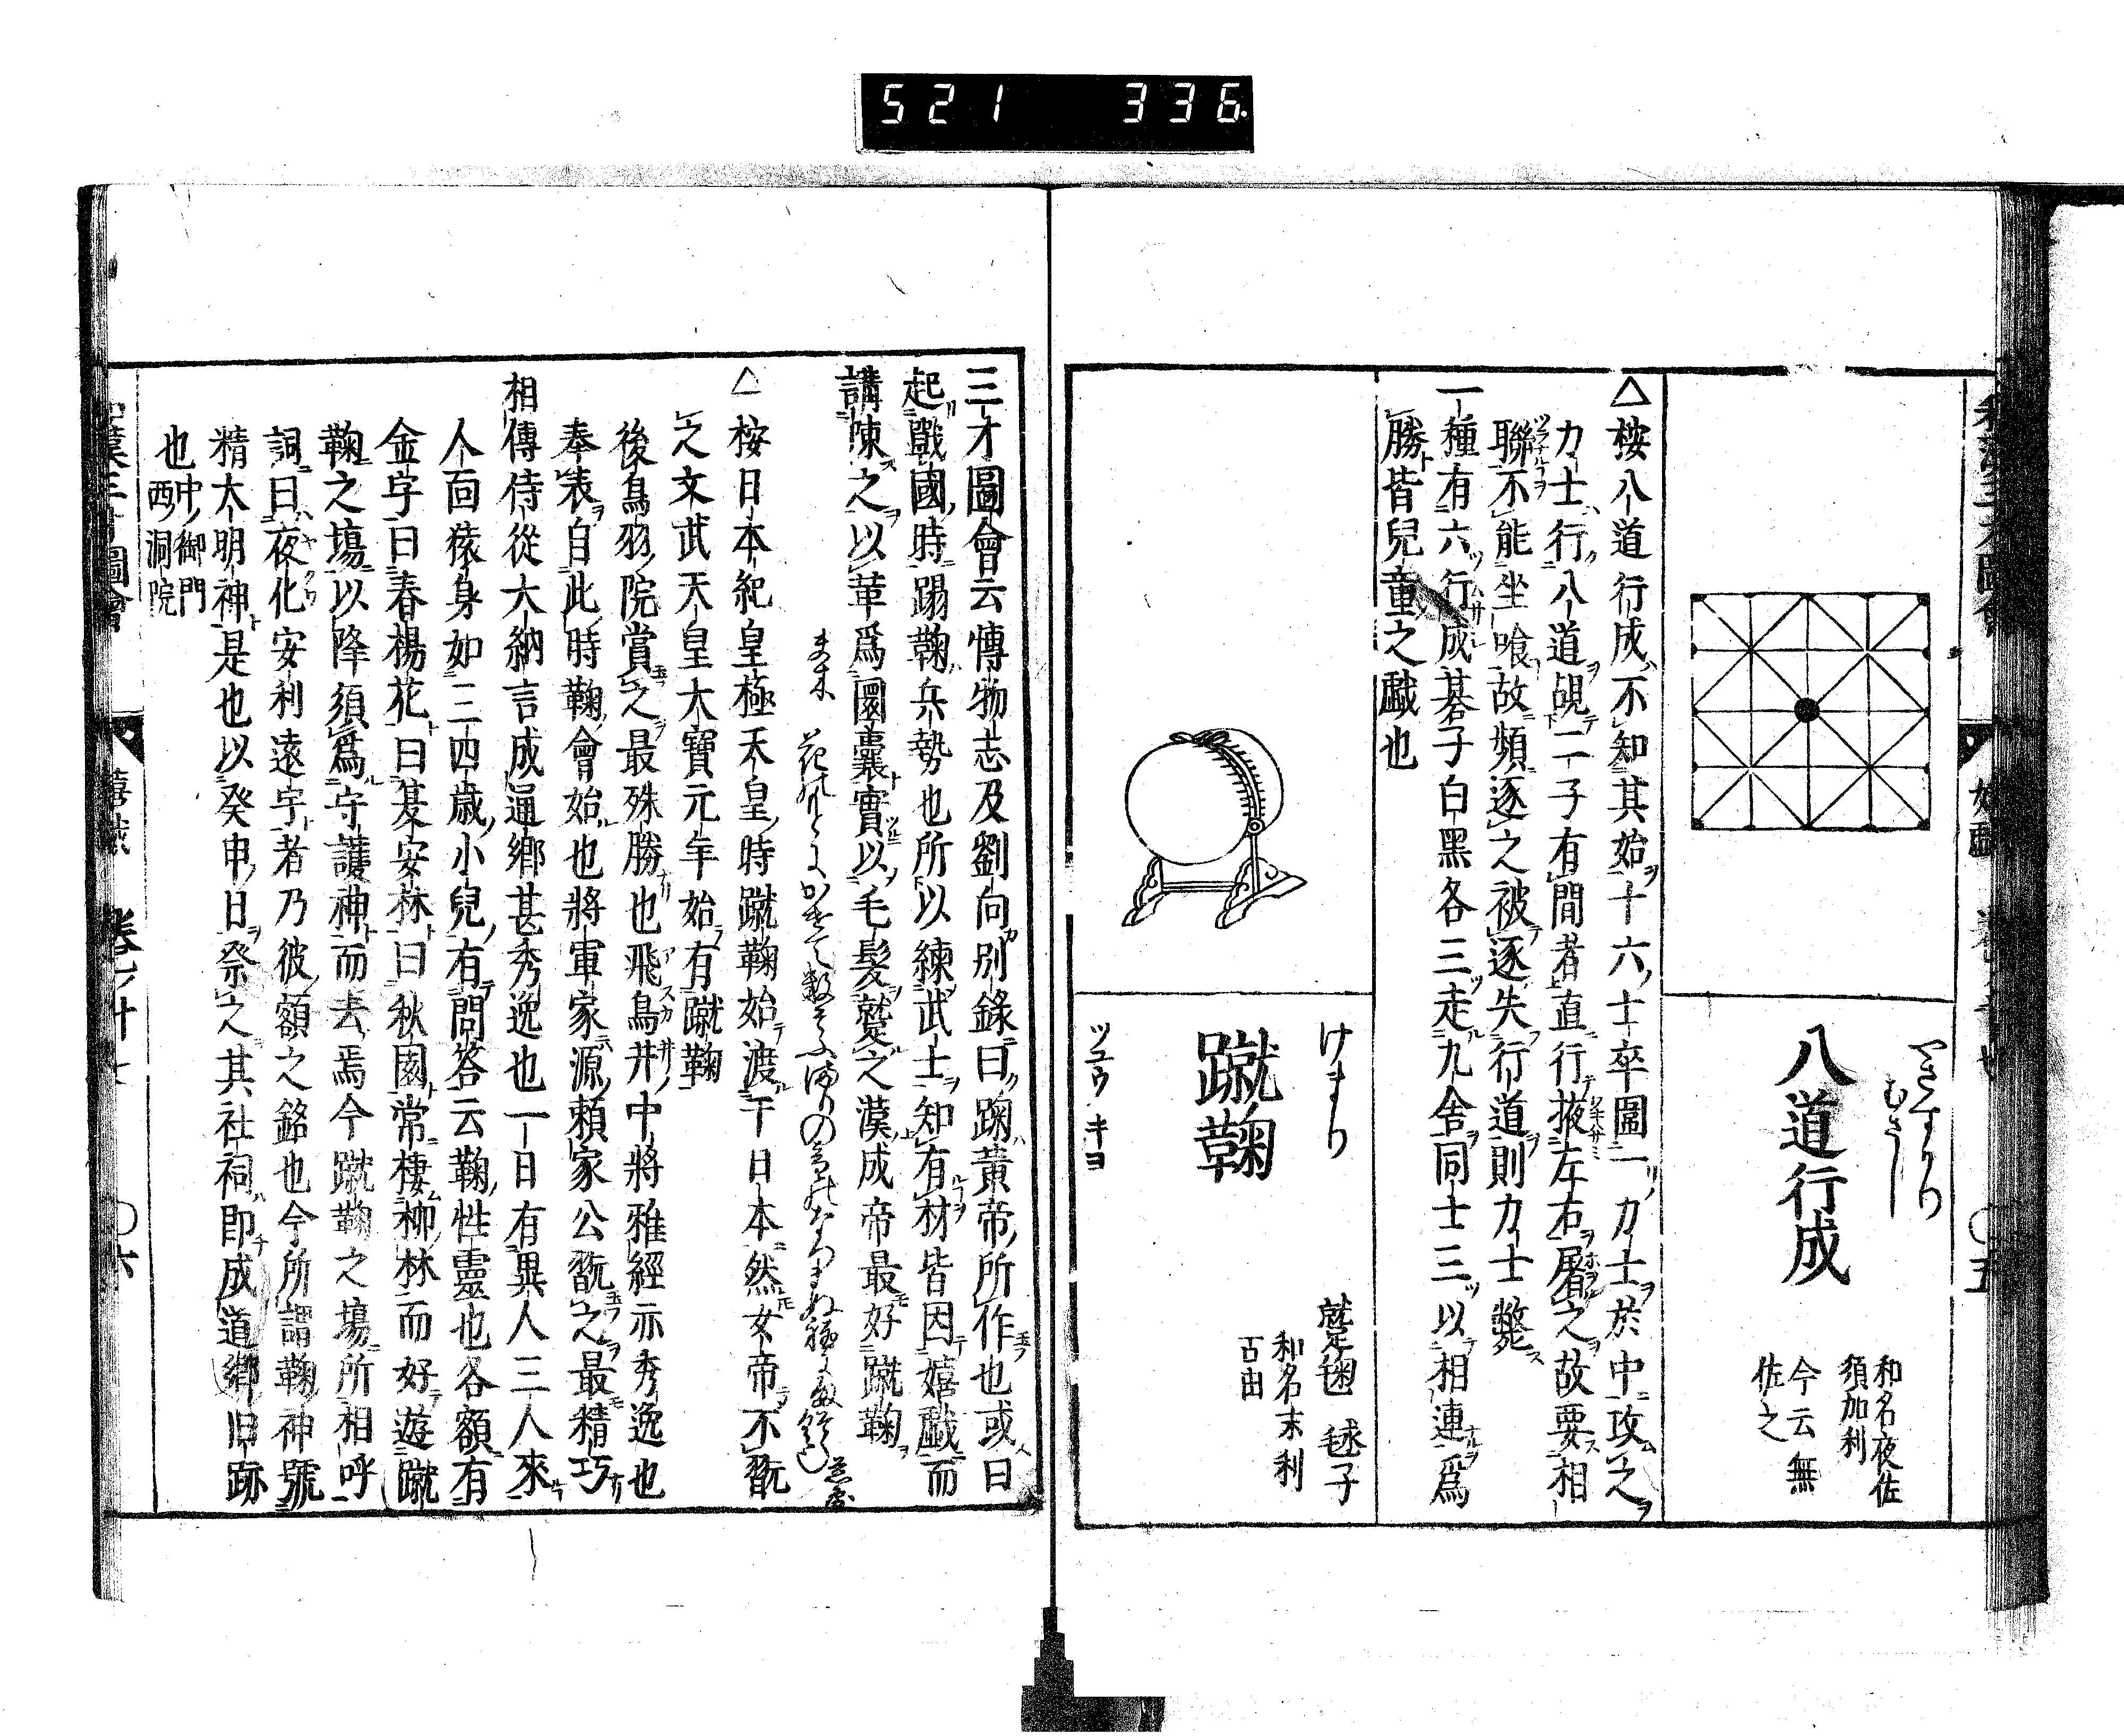 521 336
八道行成
むさし
和名夜佐
須加利
今云無
佐之
△按八道行成不知其始十六士卒圖一力士於中攻之
力士行八道覘二子有間者直行掖左右屠之故要相
聯不能坐喰故頻逐之被逐失行道則力士斃
一種有六行成碁子白黑各三走九舍同士三以相連爲
勝皆兒童之戱也
けまり
蹴鞠
ツユウ キヨ
蹵毱 毬子
和名末利
古由
三才圖會云博物志及劉向別錄曰蹴鞠黄帝所作也或曰
起戰國時蹋鞠兵勢也所以練武士知有材皆因嬉戱而
講陳之以革爲圜囊實以毛髮蹵之漢成帝最好蹴鞠
△按日本紀皇極天皇時蹴鞠始渡于日本然女帝不翫
之文武天皇大寶元年始有蹴鞠
後鳥羽院賞之最殊勝也飛鳥井中將雅經亦秀逸也
奉表自此時鞠會始也將軍家源頼家公翫之最精巧
相傳侍從大納言成通卿甚秀逸也一日有異人三人來
人面猿身如三四歳小兒有問答云鞠性靈也各額有
金字曰春楊花曰夏安林曰秋園常棲柳林而好遊蹴
鞠之塲以降須爲守護神而去焉今蹴鞠之塲所相呼
詞曰夜化安利遠宇者乃彼額之銘也今所謂鞠神號
精大明神是也以癸申日祭之其社祠即成道卿旧跡
也中御門
西洞院